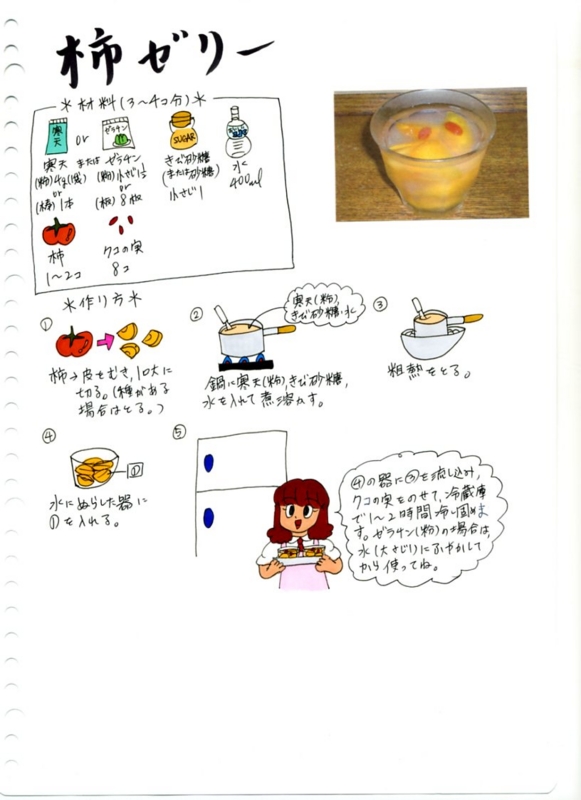 柿ゼリー
*材料(3〜4コ分)*
寒天 or ゼラチン SUGAR
寒天 または ゼラチン きび砂糖 水
(粉)4g(1袋) (粉)小さじ (または砂糖) 400ml
or or 小さじ1
(棒)1本 (板)8枚
柿 クコの実
1〜2コ 8コ
*作り方*
①
柿→皮をむき,1口大に
切る。(種がある
場合はとる。)
②
寒天(粉),
きび砂糖・水
鍋に寒天(粉),きび砂糖,
水を入れて煮溶かす。
③
粗熱をとる。
④
①
水にぬらした器に
①を入れる。
⑤
④の器に③を流し込み,
クコの実をのせて,冷蔵庫
で1〜2時間冷し固めま
す。ゼラチン(粉)の場合は,
水(大さじ1)にふやかして
から使ってね。